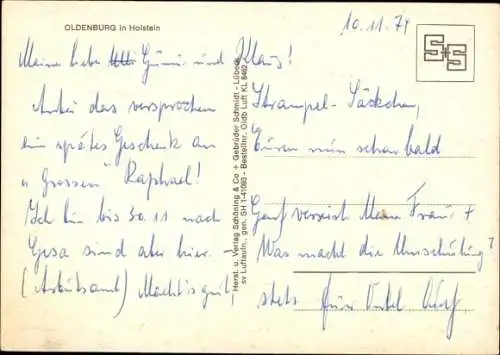 OLDENBURG in Holstein
10.11.74
S+S
Meine liebe Günni und Klaus!
Anbei das versprochen
ein spätes Geschenk an
"Grossen" Raphael!
Ich bin bis 30.11 nach
Gesa sind aber hier. -
(Arbeitsamt) Macht's gut -
Herst. u. Verlag Schöning & Co + Gebrüder Schmidt - Lübeck
sv Luftaufn., gen. SH 1-41093 - Bestellnr. Oldb Luft KL 8462
Strampel-Säckchen,
Euren nun schon bald
Genf verreist Meine Frau +
Was macht die Umschulung?
stets